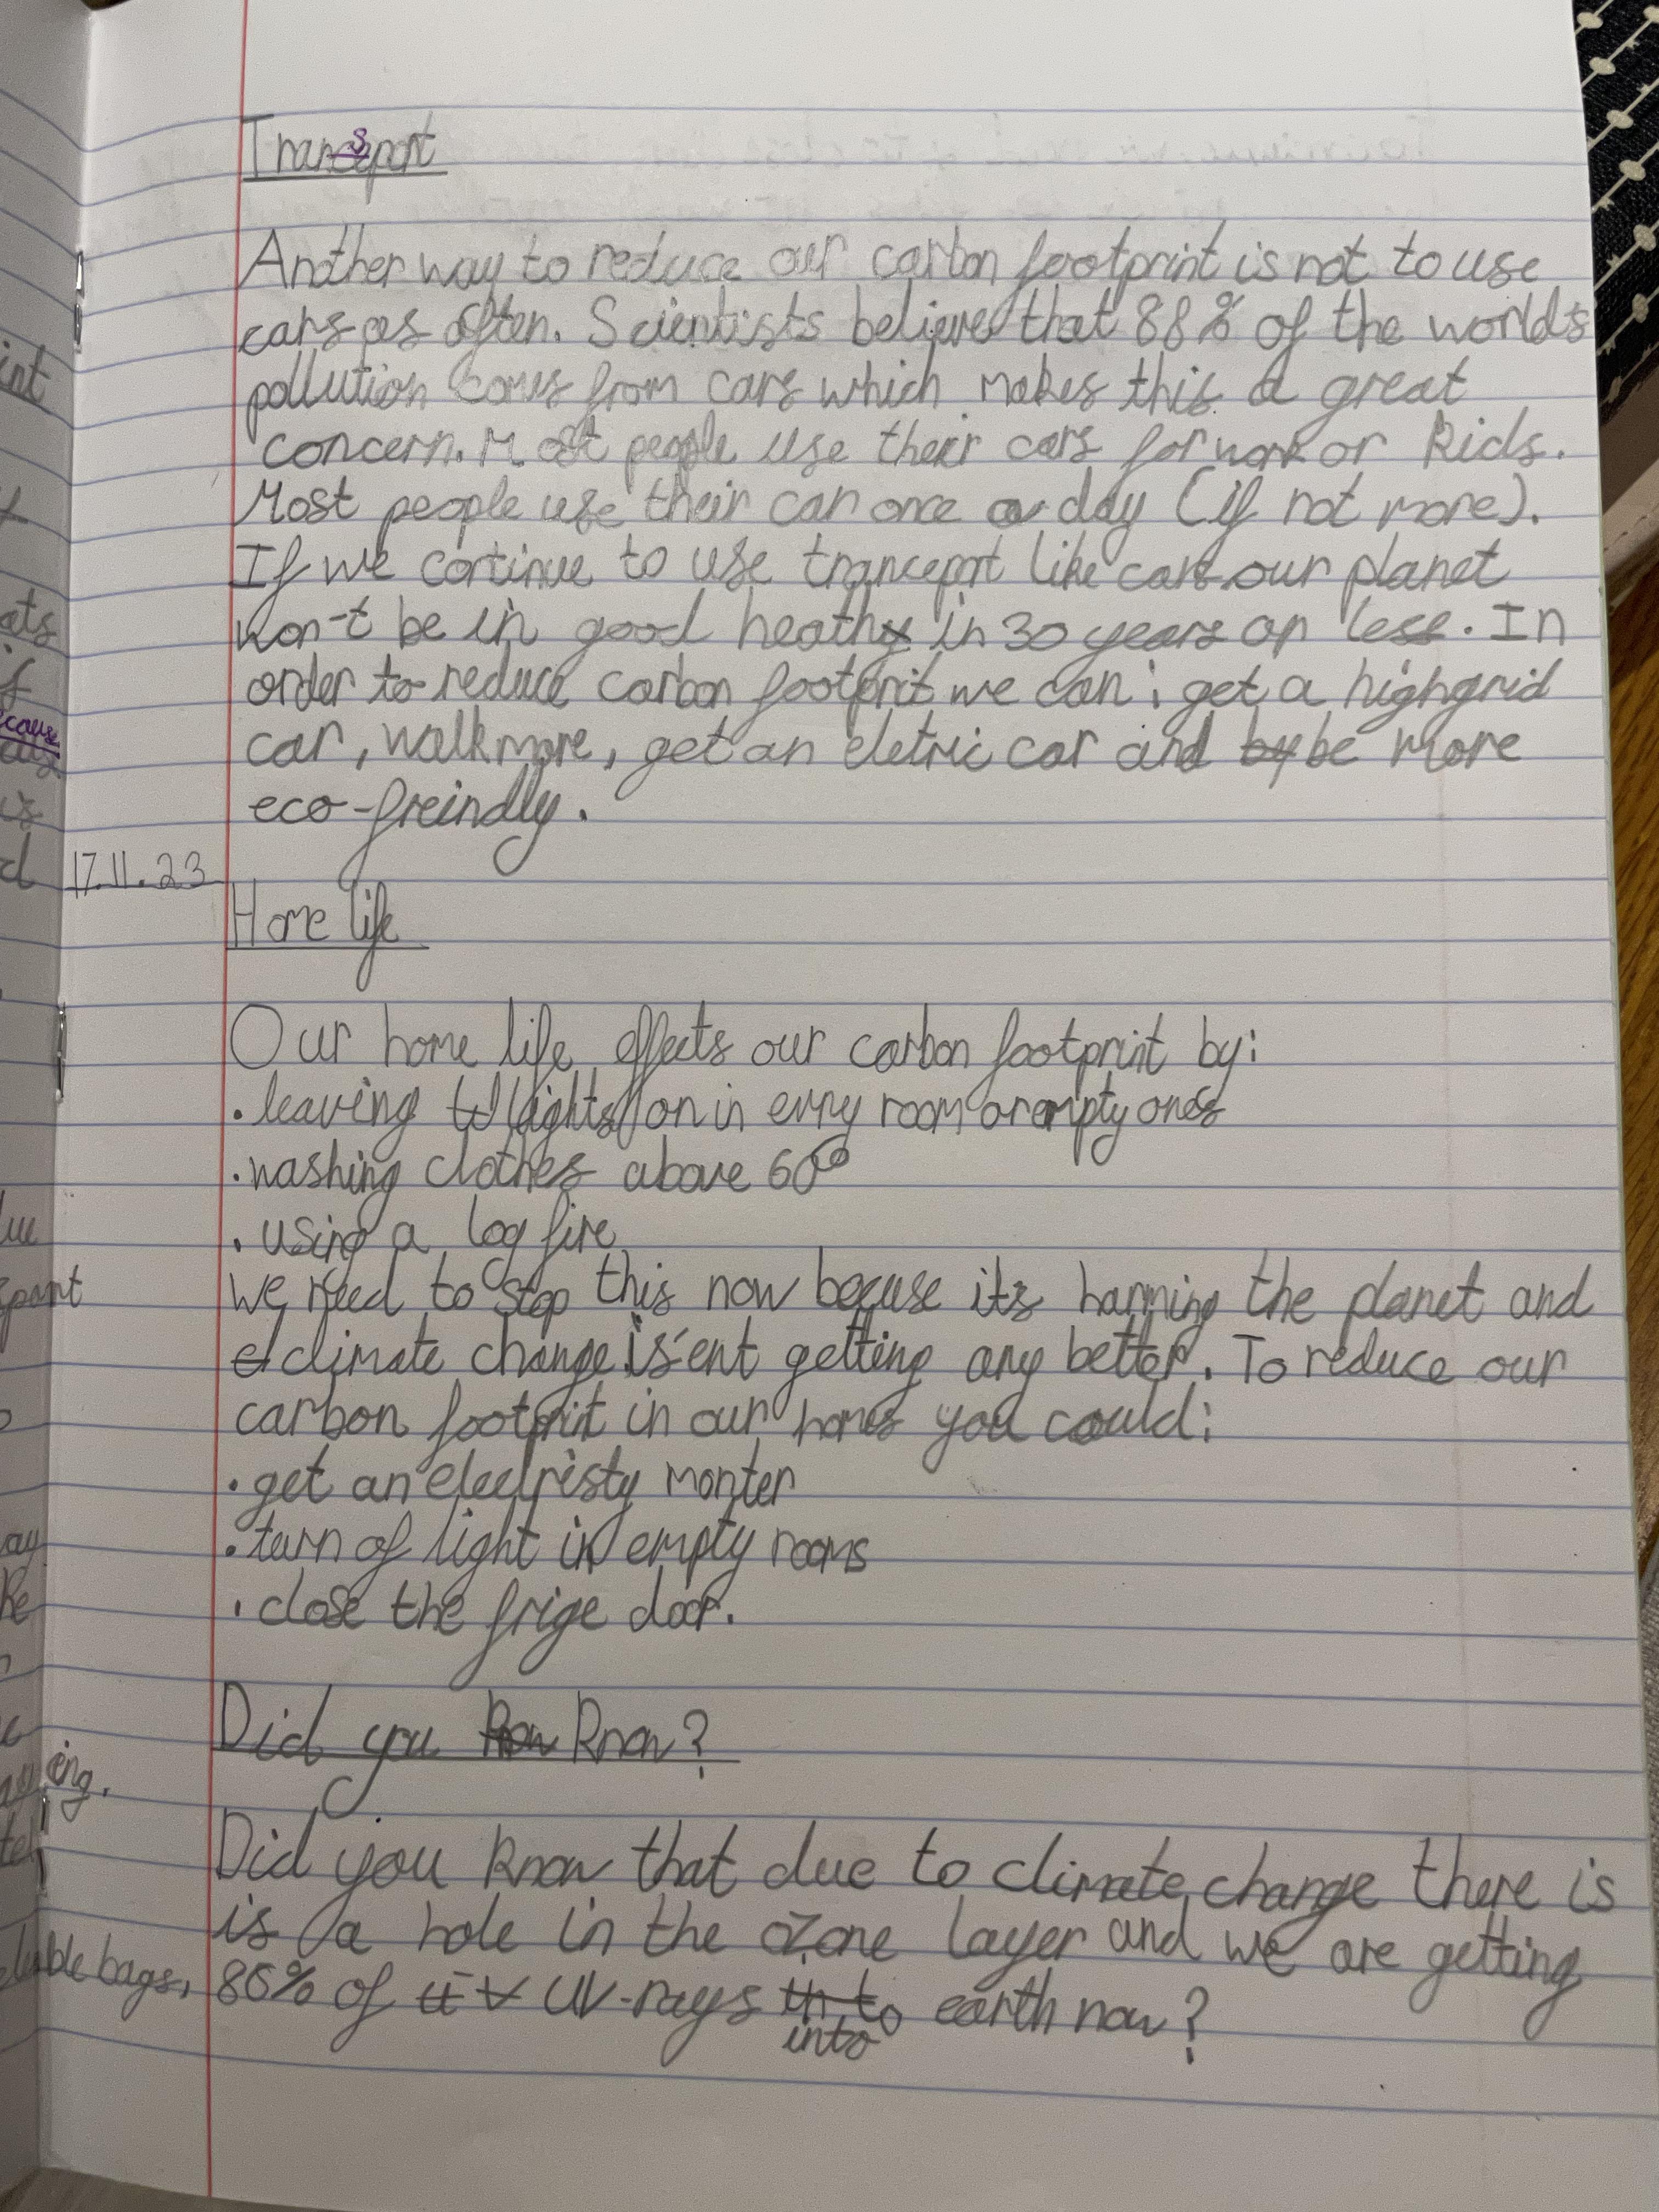 Transport
Another way to reduce our carbon footprint is not to use
cars as often. Scientists believe that 88% of the world's
pollution comes from cars which makes this a great
concern. Most people use their cars for work or kids.
Most people use their car once a day (if not more).
If we continue to use tranceport like cars our planet
won't be in good heathy in 30 years or less. In
order to reduce carbon footprit we can: get a highgrid
car, walk more, get an eletric car and by be more
eco-freindly.
17.11.23
Home life
Our home life effects our carbon footprint by:
• leaving lights on in evry room or empty ones
• washing clothes above 60°
• using a log fire
We need to stop this now becuse it's harming the planet and
climate change is'ent getting any better. To reduce our
carbon footprit in our homes you could:
• get an electristy monter
• turn of light in empty rooms
• close the frige door.
Did you know know?
Did you know that due to climate change there is
is a hole in the ozone layer and we are getting
86% of UV-rays in to earth now?
into
int
ats
ecause
is
d
spart
ay
ing.
bags,